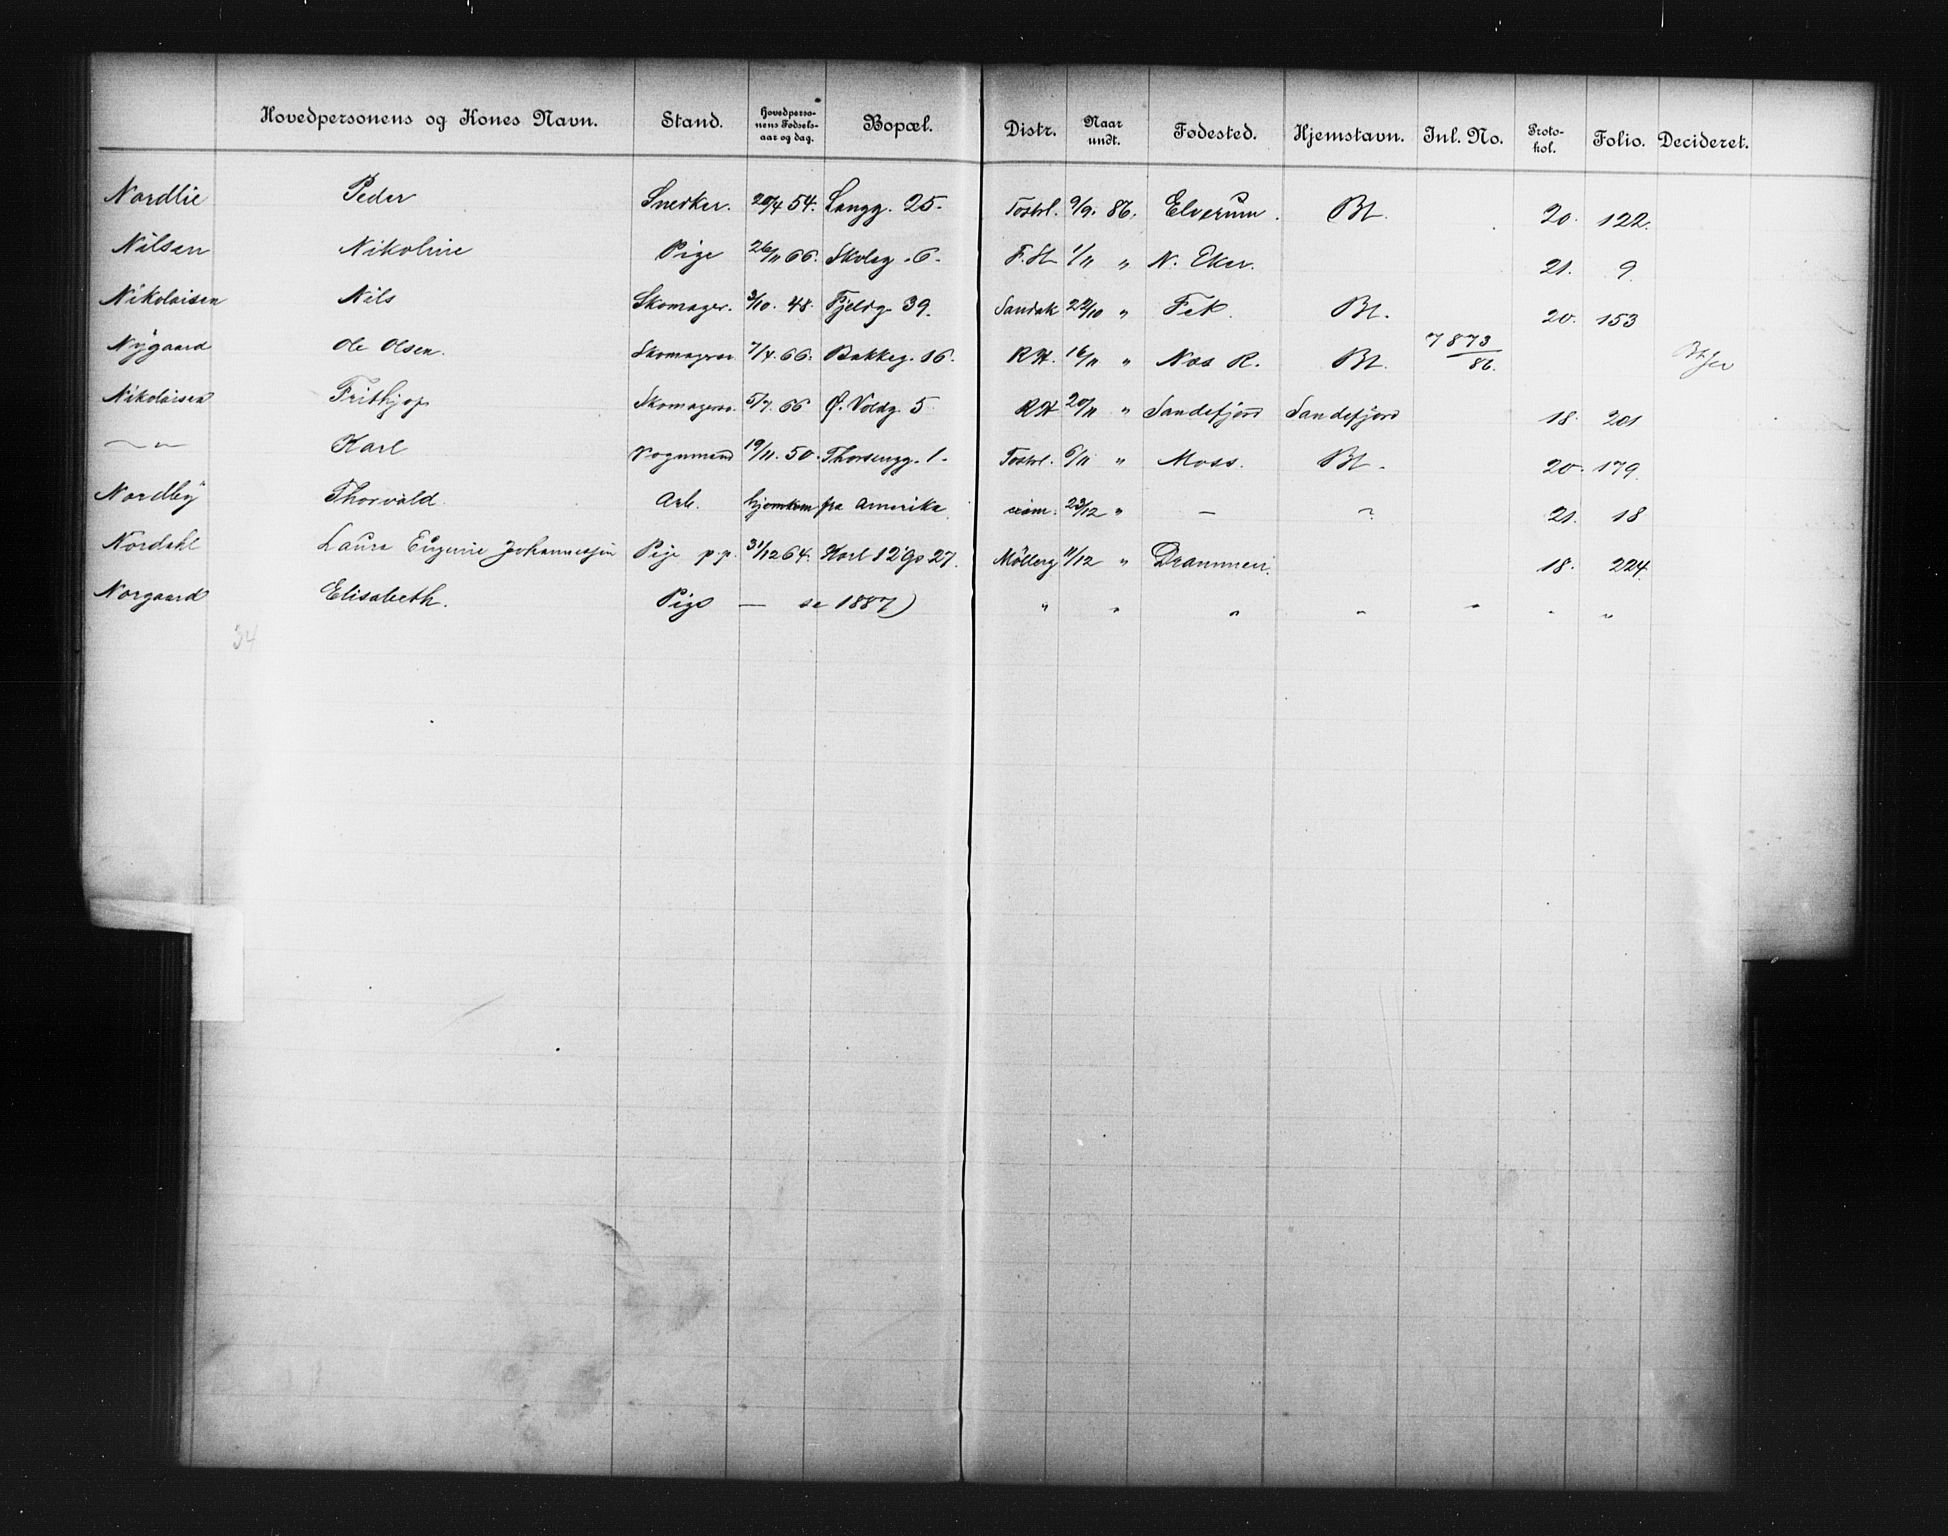 Hovedpersonens og Kones Navn. Stand. Hovedpersonens Fødselsaar og dag. Bopæl. Distr. Naar undt. Fødested. Hjemstavn. Inl. No. Protokol. Folio. Decideret.
Nordlie Peder Snedker. 20/4 54. Langg. 25. 9/9. 86. Elverum. Bt. 20. 122.
Nilsen Nikoline Pige 26/11 66. Skoleg. 6. F. H 1/11 " N. Eker. 21. 9.
Nikolaisen Nils Skomager. 3/10. 48. Fjeldg. 39. Sandak 22/10 " Fet. Bt. 20. 153
Nygaard Ole Olsen. Skomagersv. 7/4. 66. Bakkeg. 16. R.H. 16/11 " Næs R. Bt. 7873/86.
Nikolaisen Frithjof Skomagersv. 5/7. 66 Ø. Voldg. 5. R H 20/11 " Sandefjord Sandefjord 18. 201
— " — Karl Vognmand 19/11. 50. Thorsengg. 1. 6/11 " Moss. Bt. 20. 179.
Nordby Thorvald. Arb. hjemkom fra Amerika. 23/12 " — ? 21. 18
Nordahl Laura Eugenie Johannessen Pige p.p. 31/12 64. Karl 12' Gd 27. Möllerg 11/12 " Drammen. 18. 224.
Norgaard Elisabeth. Pige — se 1887) " " " " " " "
34